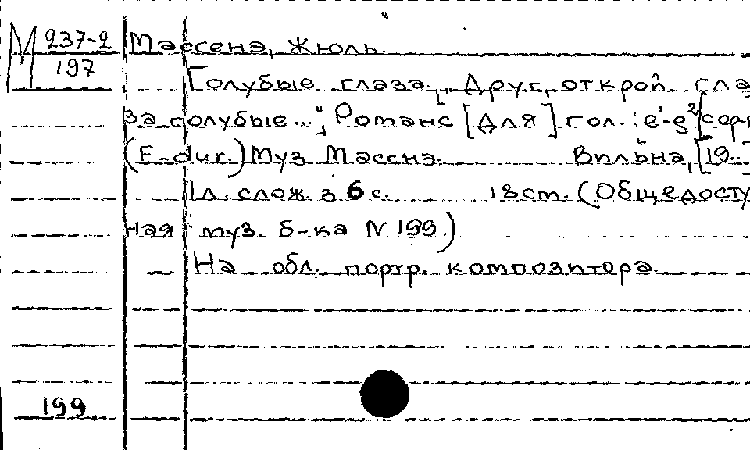 М 237-2 Массена, Жюль
197
Голубые глаза. „Друг, открой гла
за голубые...“; Романс [для] гол.: e'-g² [сопр
(E-dur.) Муз. Массна. Вильна, [19.
1 л. слож. в 6 с. 18 см. (Общедосту
ная муз. б-ка N 199.)
На обл. портр. композитора.
199